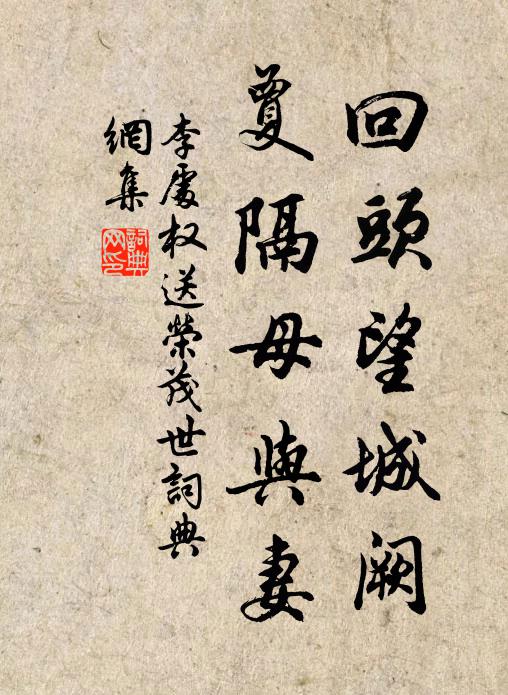 回頭望城闕
夐隔母與妻
李處权送榮茂世詞典
網集
詞典
网印